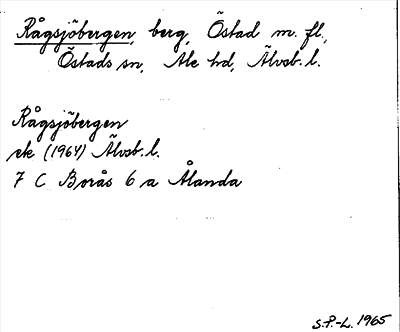 Rågsjöbergen, berg, Östad m. fl.,
Östads sn, Ale hd, Älvsb. l.
Rågsjöbergen
ek (1964) Älvsb. l.
7 C Borås 6 a Ålanda
S.P.-L. 1965